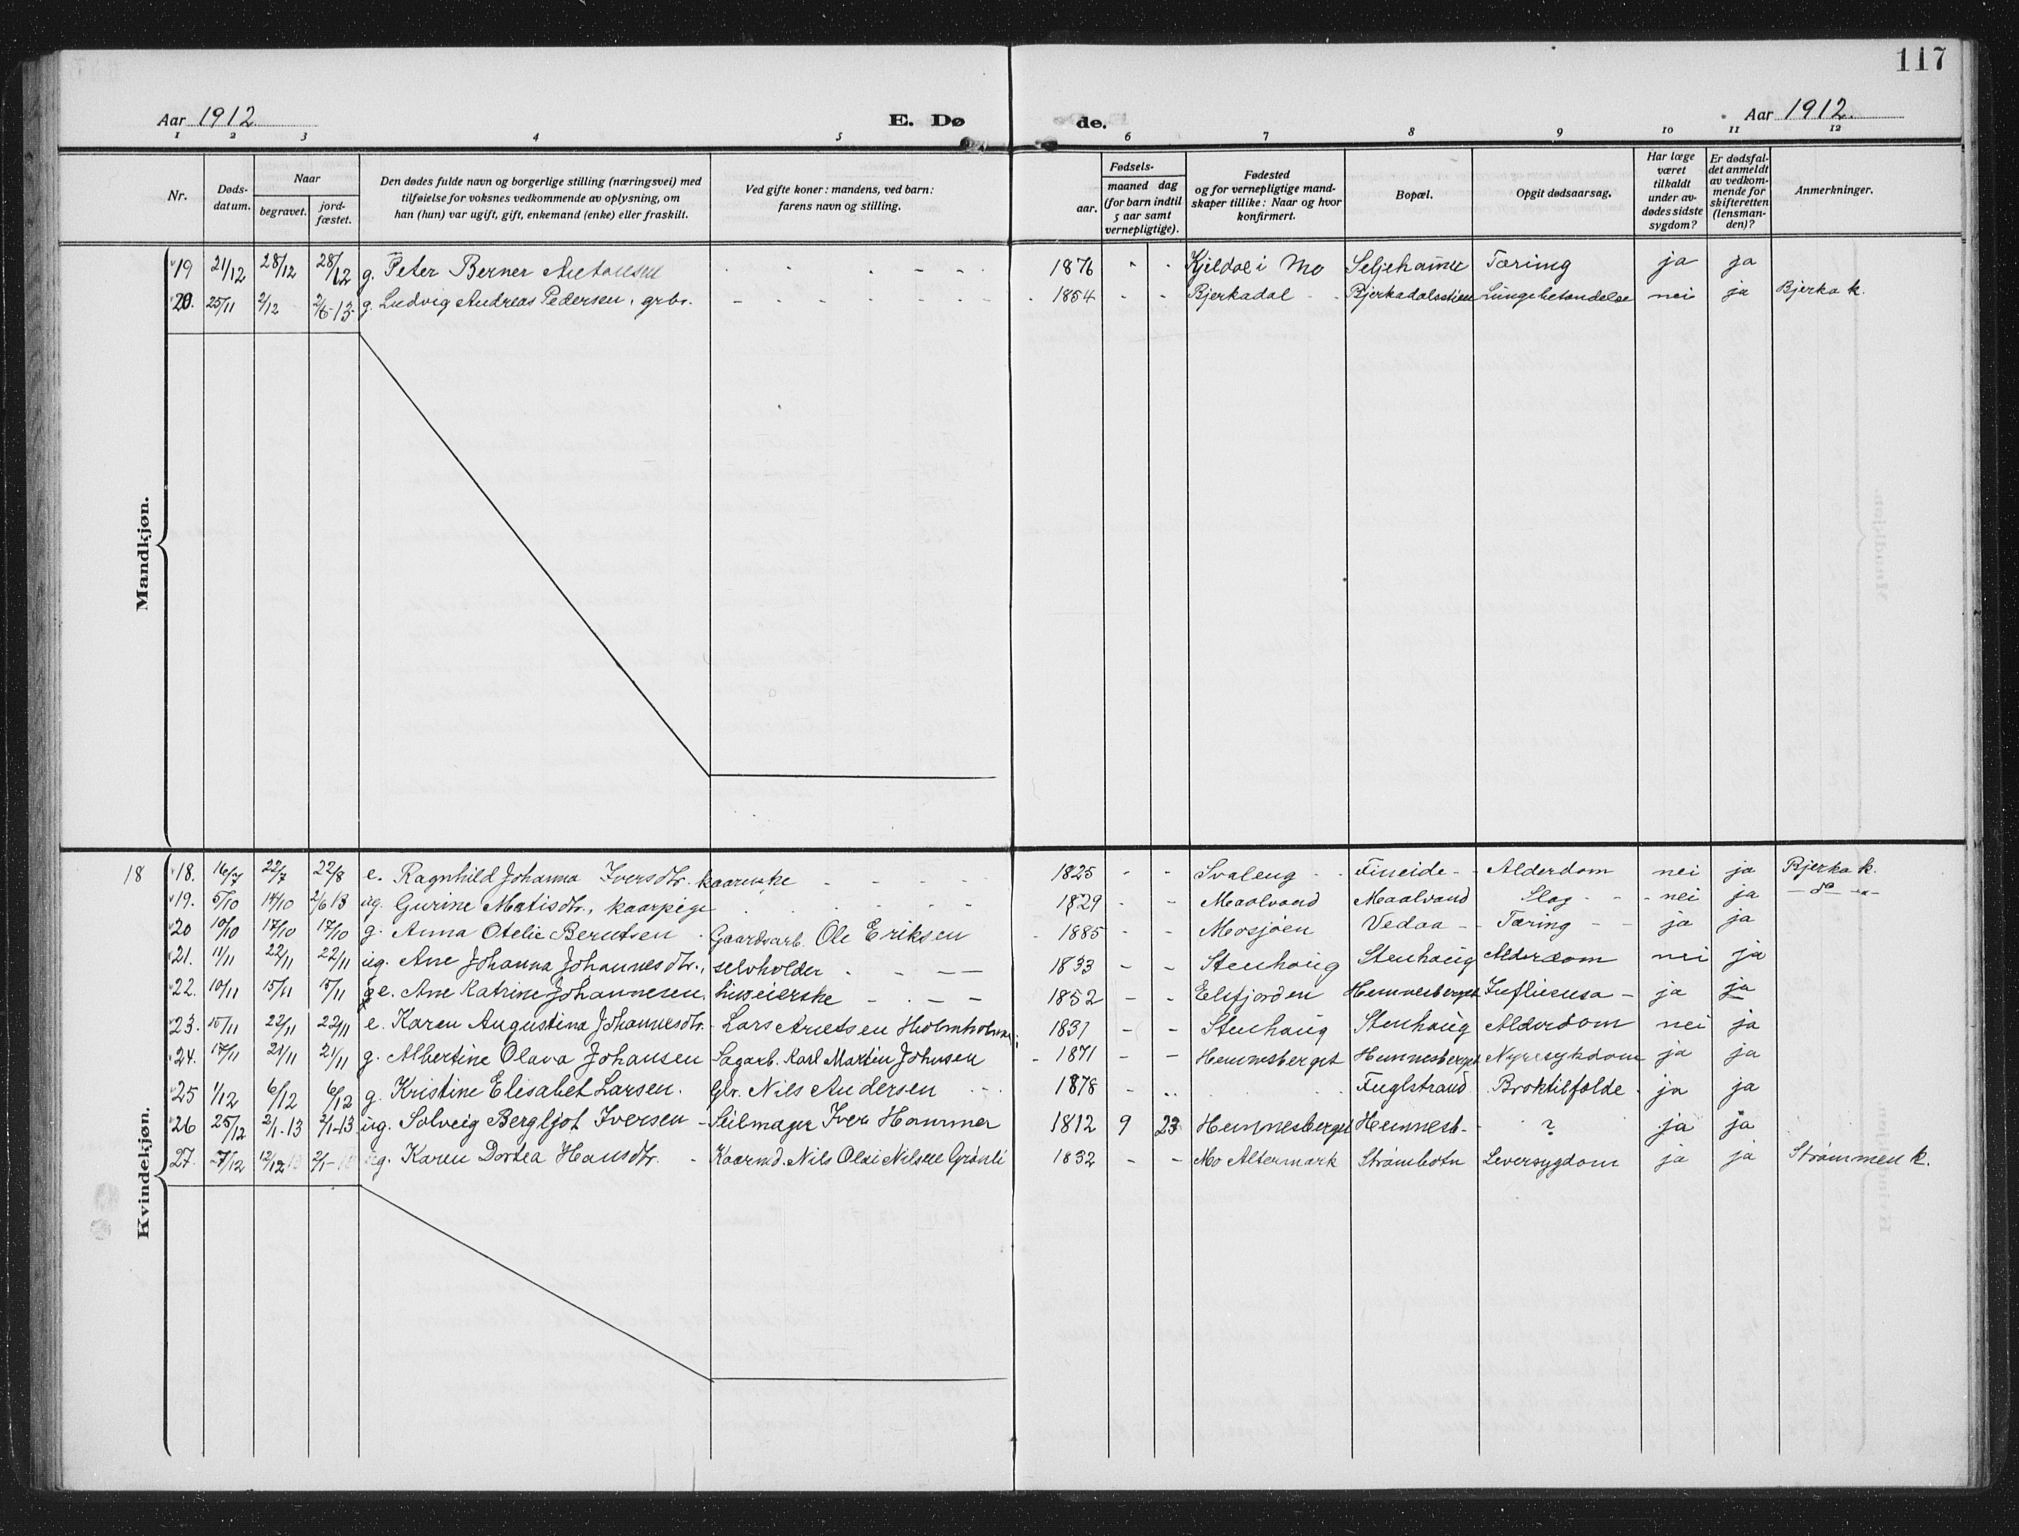 117
Aar 1912. E. Dø de. Aar 1912.
1 2 3 4 5 6 7 8 9 10 11 12
Nr. Døds-datum. Naar begravet. jord-fæstet. Den dødes fulde navn og borgerlige stilling (næringsvei) med tilføielse for voksnes vedkommende av oplysning, om han (hun) var ugift, gift, enkemand (enke) eller fraskilt. Ved gifte koner: mandens, ved barn: farens navn og stilling. Fødsels- aar. maaned dag (for barn indtil 5 aar samt vernepligtige). Fødested og for vernepligtige mandskaper tillike: Naar og hvor konfirmert. Bopæl. Opgit dødsaarsag. Har læge været tilkaldt under avdødes sidste sygdom? Er dødsfaldet anmeldt av vedkommende for skifteretten (lensmanden)? Anmerkninger.
Mandkjøn.
19 21/12 28/12 28/12 g. Peter Berner - - - - - 1876 - - Kjeldal i Mo Tæring ja ja
20. 25/11 2/12 2/6-13- g. Ludvig Andreas Pedersen, grbr. - - - - - 1854 - - Bjerkadal - - Bjerkadalsstien Lungebetændelse nei ja Bjerka k.
Kvindekjøn.
18 18. 16/7 22/7 22/8 e. Ragnhild Johanna Iversdtr. kaarenke - - - - 1825 - - Svaleng - - Fineide - - Alderdom nei ja Bjerka k.
19. 5/10 14/10 2/6 13 ug. Gurine Matisdtr., kaarpige - - - - - 1829 - - Maalvand Maalvand Slag - - - nei ja - do -
20 10/10 17/10 17/10 g. Anna Otelie Berntsen - Gaardsarb. Ole Eriksen - 1885 - - Mosjøen Vedaa - Tæring - - ja ja
21. 11/11 22/11 22/11 ug. Ane Johanna Johannesdtr., selvholder - - - - 1833 - - Stenhaug Stenhaug Alderdom nei ja
22. 10/11 15/11 15/11 e. Ane Katrine Johannesen, huseierske - - - - 1852 - - Elsfjorden Hemnesberget Influensa - ja ja
23. 15/11 22/11 22/11 e. Karen Augustina Johannesdtr. - Lars Arntsen 1831 - - Stenhaug Stenhaug Alderdom nei ja
24. 17/11 21/11 21/11 g. Albertine Olava Johansen Sagarb. Karl Martin Johnsen - 1871 - - Hemnesberget Hemnesberget Nyresykdom ja ja
25 1/12 6/12 6/12 g. Kristine Elisabet Larsen. Gbr. Nils Andersen - - 1878 - - - - Fuglstrand Broktilfælde - ja ja
26 25/12 2/1-13 2/1-13 ug. Solveig Bergljot Iversen - Seilmager Iver Hammer 1812 9 23 Hemnesberget Hemnesb. - ? ja ja
27. -7/12 12/12 2/1- g. Karen Dortea Hansdtr. - Kaarmd. Nils Olai Nilsen Grønli 1832 - - Mo Altermark Strømbotn Leversygdom ja ja Strømmen k.